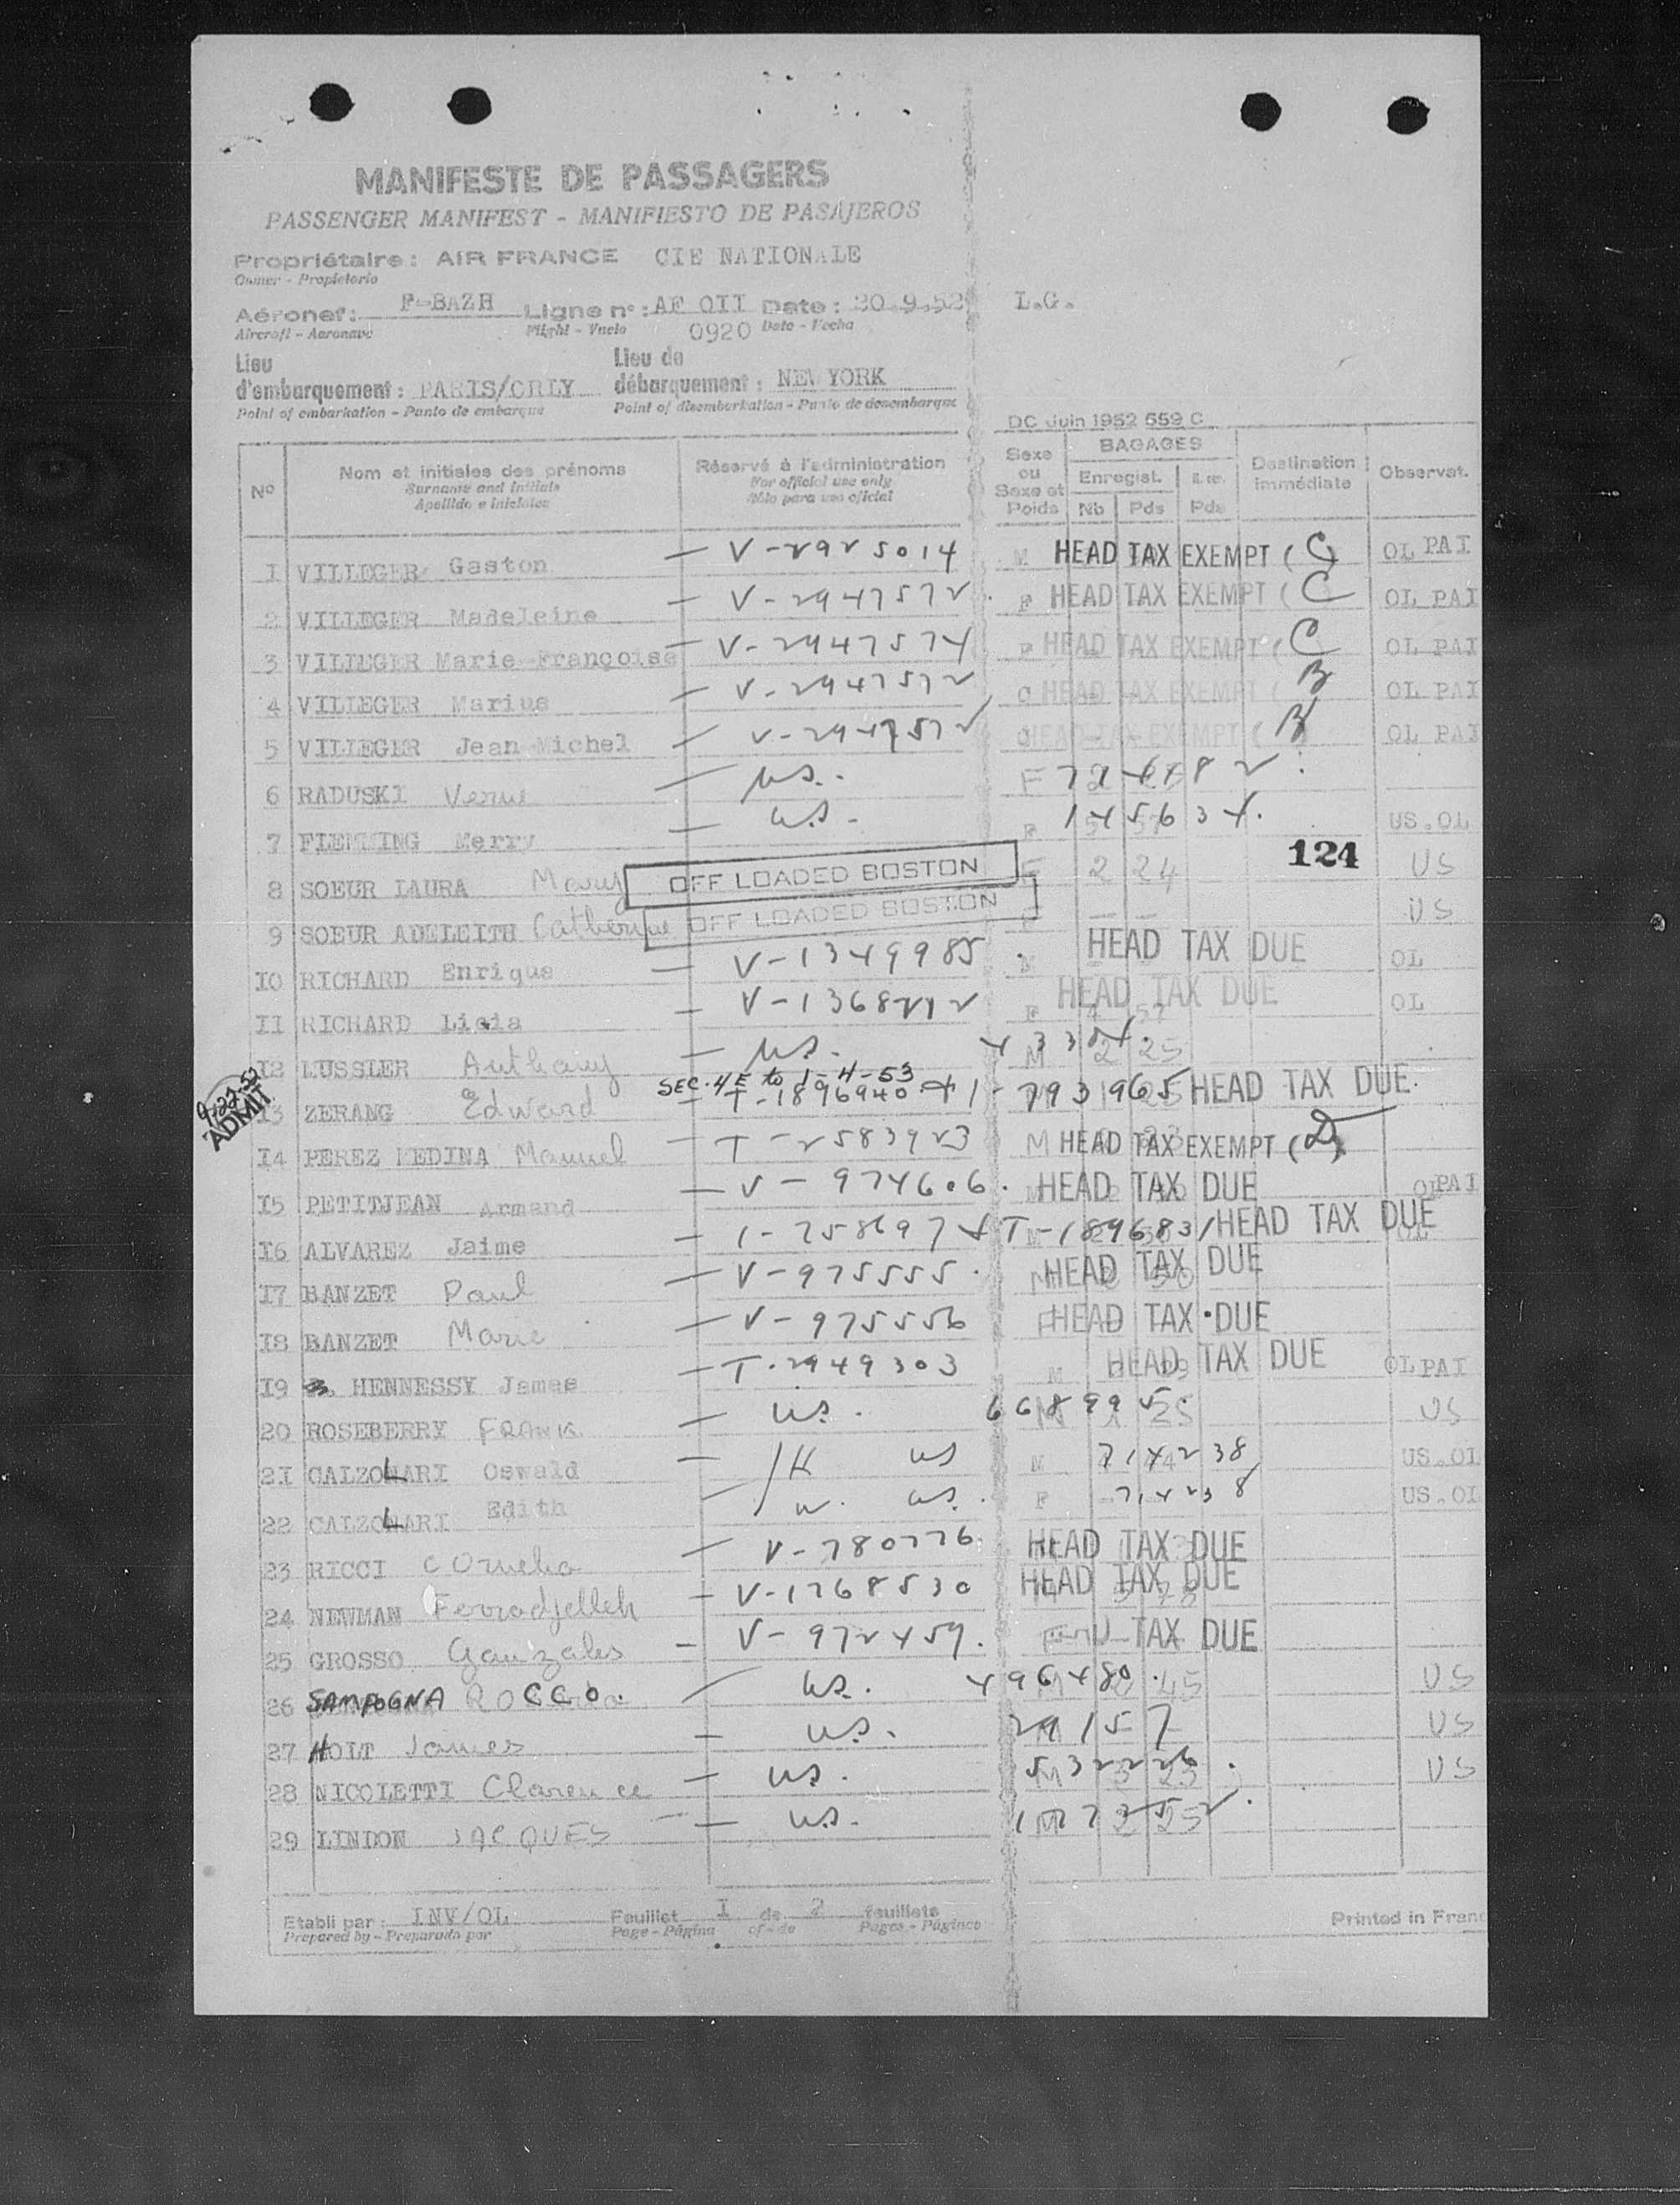 MANIFESTE DE PASSAGERS
PASSENGER MANIFEST - MANIFIESTO DE PASAJEROS
Propriétaire : AIR FRANCE CIE NATIONALE
Owner - Propietario
Aéronef : F-BAZH Ligne n° : AF OII Date : 20.9.52 L.G.
Aircraft - Aeronave Flight - Vuelo 0920 Date - Fecha
Lieu d'embarquement : PARIS/ORLY Lieu de débarquement : NEW YORK
Point of embarkation - Punto de embarque Point of disembarkation - Punto de desembarque
DC Juin 1952 559 C
Nº Nom et initiales des prénoms Réservé à l'administration Sexe ou Sexe et Poids BAGAGES Enregist. Nb Pds Pds Destination immédiate Observat.
Surname and initials For official use only
Apellido e iniciales Sólo para uso oficial
I VILLEGER Gaston — V-2925014 M HEAD TAX EXEMPT (C) OL PAI
2 VILLEGER Madeleine — V-2947572 F HEAD TAX EXEMPT (C OL PAI
3 VILLEGER Marie-Françoise — V-2947574 F HEAD TAX EXEMPT (C OL PAI
4 VILLEGER Marius — V-2947572 C HEAD TAX EXEMPT (B OL PAI
5 VILLEGER Jean-Michel — V-2947572 HEAD TAX EXEMPT (B OL PAI
6 RADUSKI — US. F
7 Merry — U.S. F 145634. US.OL
124
8 SOEUR LAURA Mary OFF LOADED BOSTON F 2 24 US
9 SOEUR ADELEITH Catherine OFF LOADED BOSTON F — — US
IO RICHARD Enrique — V-1349985 M HEAD TAX DUE OL
II RICHARD Licia — V-1368212 F HEAD TAX DUE OL
I2 LUSSIER Anthony — US. M 2 25
9-22-52 ADMIT
SEC. 4E to 1-4-53
I3 ZERANG Edward — T-1896940 + 1-793965 HEAD TAX DUE.
I4 PEREZ MEDINA Manuel — T-2583923 M HEAD TAX EXEMPT (D)
I5 PETITJEAN Armand — V-974606. HEAD TAX DUE OL PAI
I6 ALVAREZ Jaime — 1-758697 + T-1896831 HEAD TAX DUE OL
I7 BANZET Paul — V-975555. M HEAD TAX DUE
I8 BANZET Marie — V-975556 F HEAD TAX DUE
I9 HENNESSY James — T-2949303 M HEAD TAX DUE OL PAI
20 ROSEBERRY FRANK — US. M 1 25 US
2I CALZOLARI Oswald — H US M 714238 US.OL
22 CALZOLARI Edith — W. US. F 714238 US.OL
23 RICCI Cornelio — V-780776 HEAD TAX DUE
24 NEWMAN Ferradjelleh — V-1768530 HEAD TAX DUE
25 GROSSO Gonzales — V-972459. TAX DUE
26 SAMPOGNA ROCCO. — US. 496480. US
27 HOLT James — US. 29157 US
28 NICOLETTI Clarence — US. US
29 LINDON JACQUES — US.
Etabli par : INV/OL Feuillet I de 2 feuillets Printed in Franc
Prepared by - Preparado por Page - Página of - de Pages - Páginas